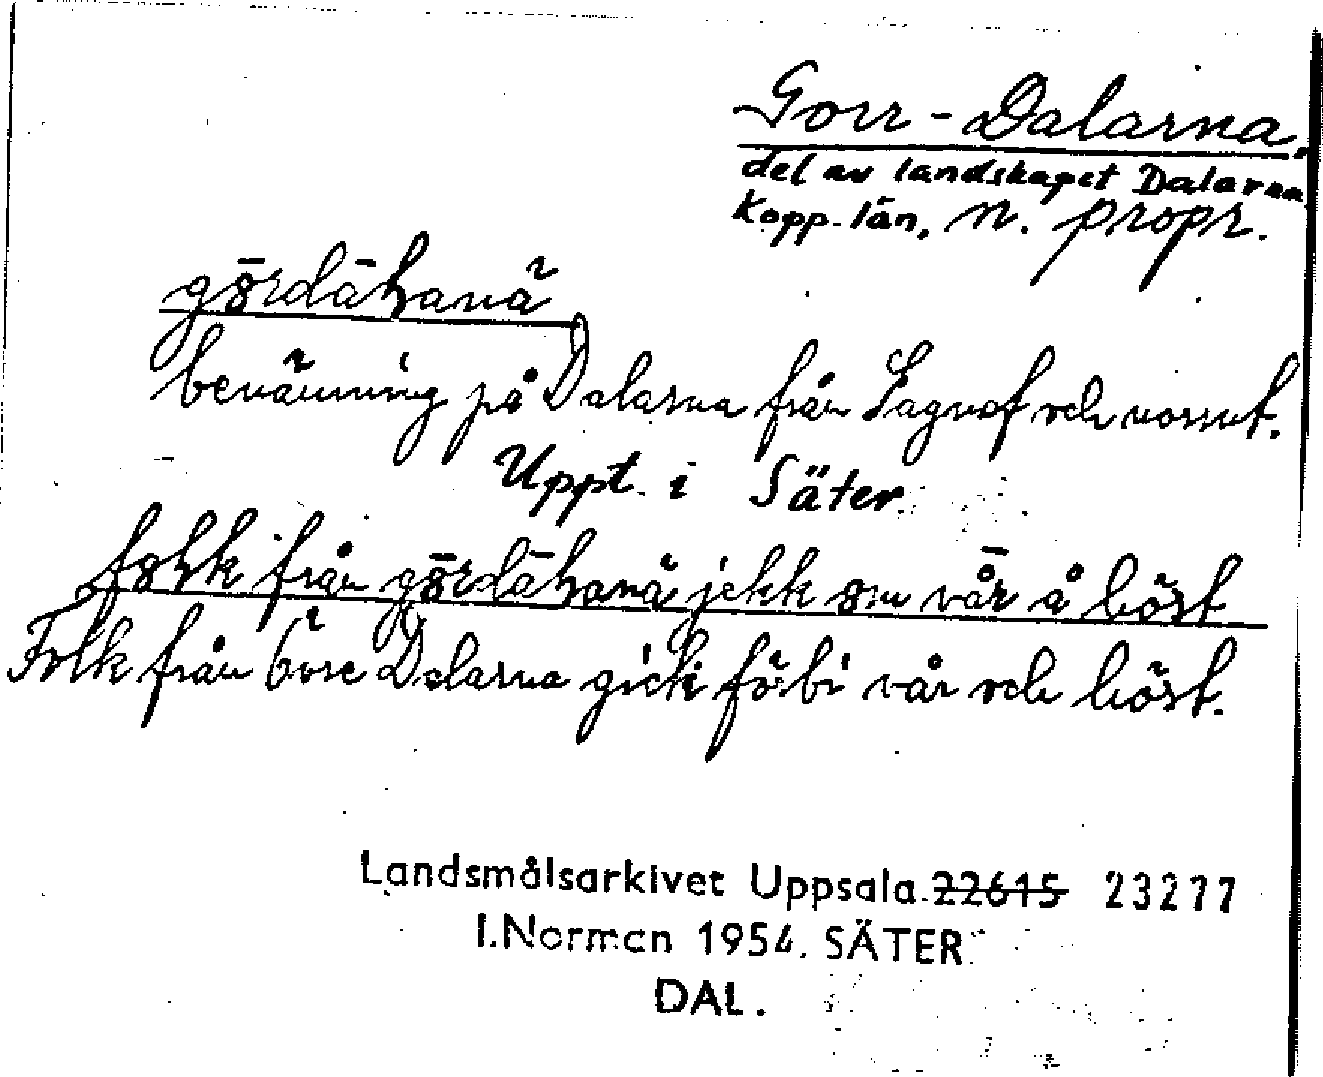 Gorr-Dalarna.
del av landskapet Dalarna
Kopp-län, n. propr.
benämning på Dalarna från Gagnef och norrut.
Uppt. i Säter.
från vår å höst
Folk från övre Dalarna gick förbi vår och höst.
Landsmålsarkivet Uppsala. 22615 23277
I. Norman 1954. SÄTER
DAL.